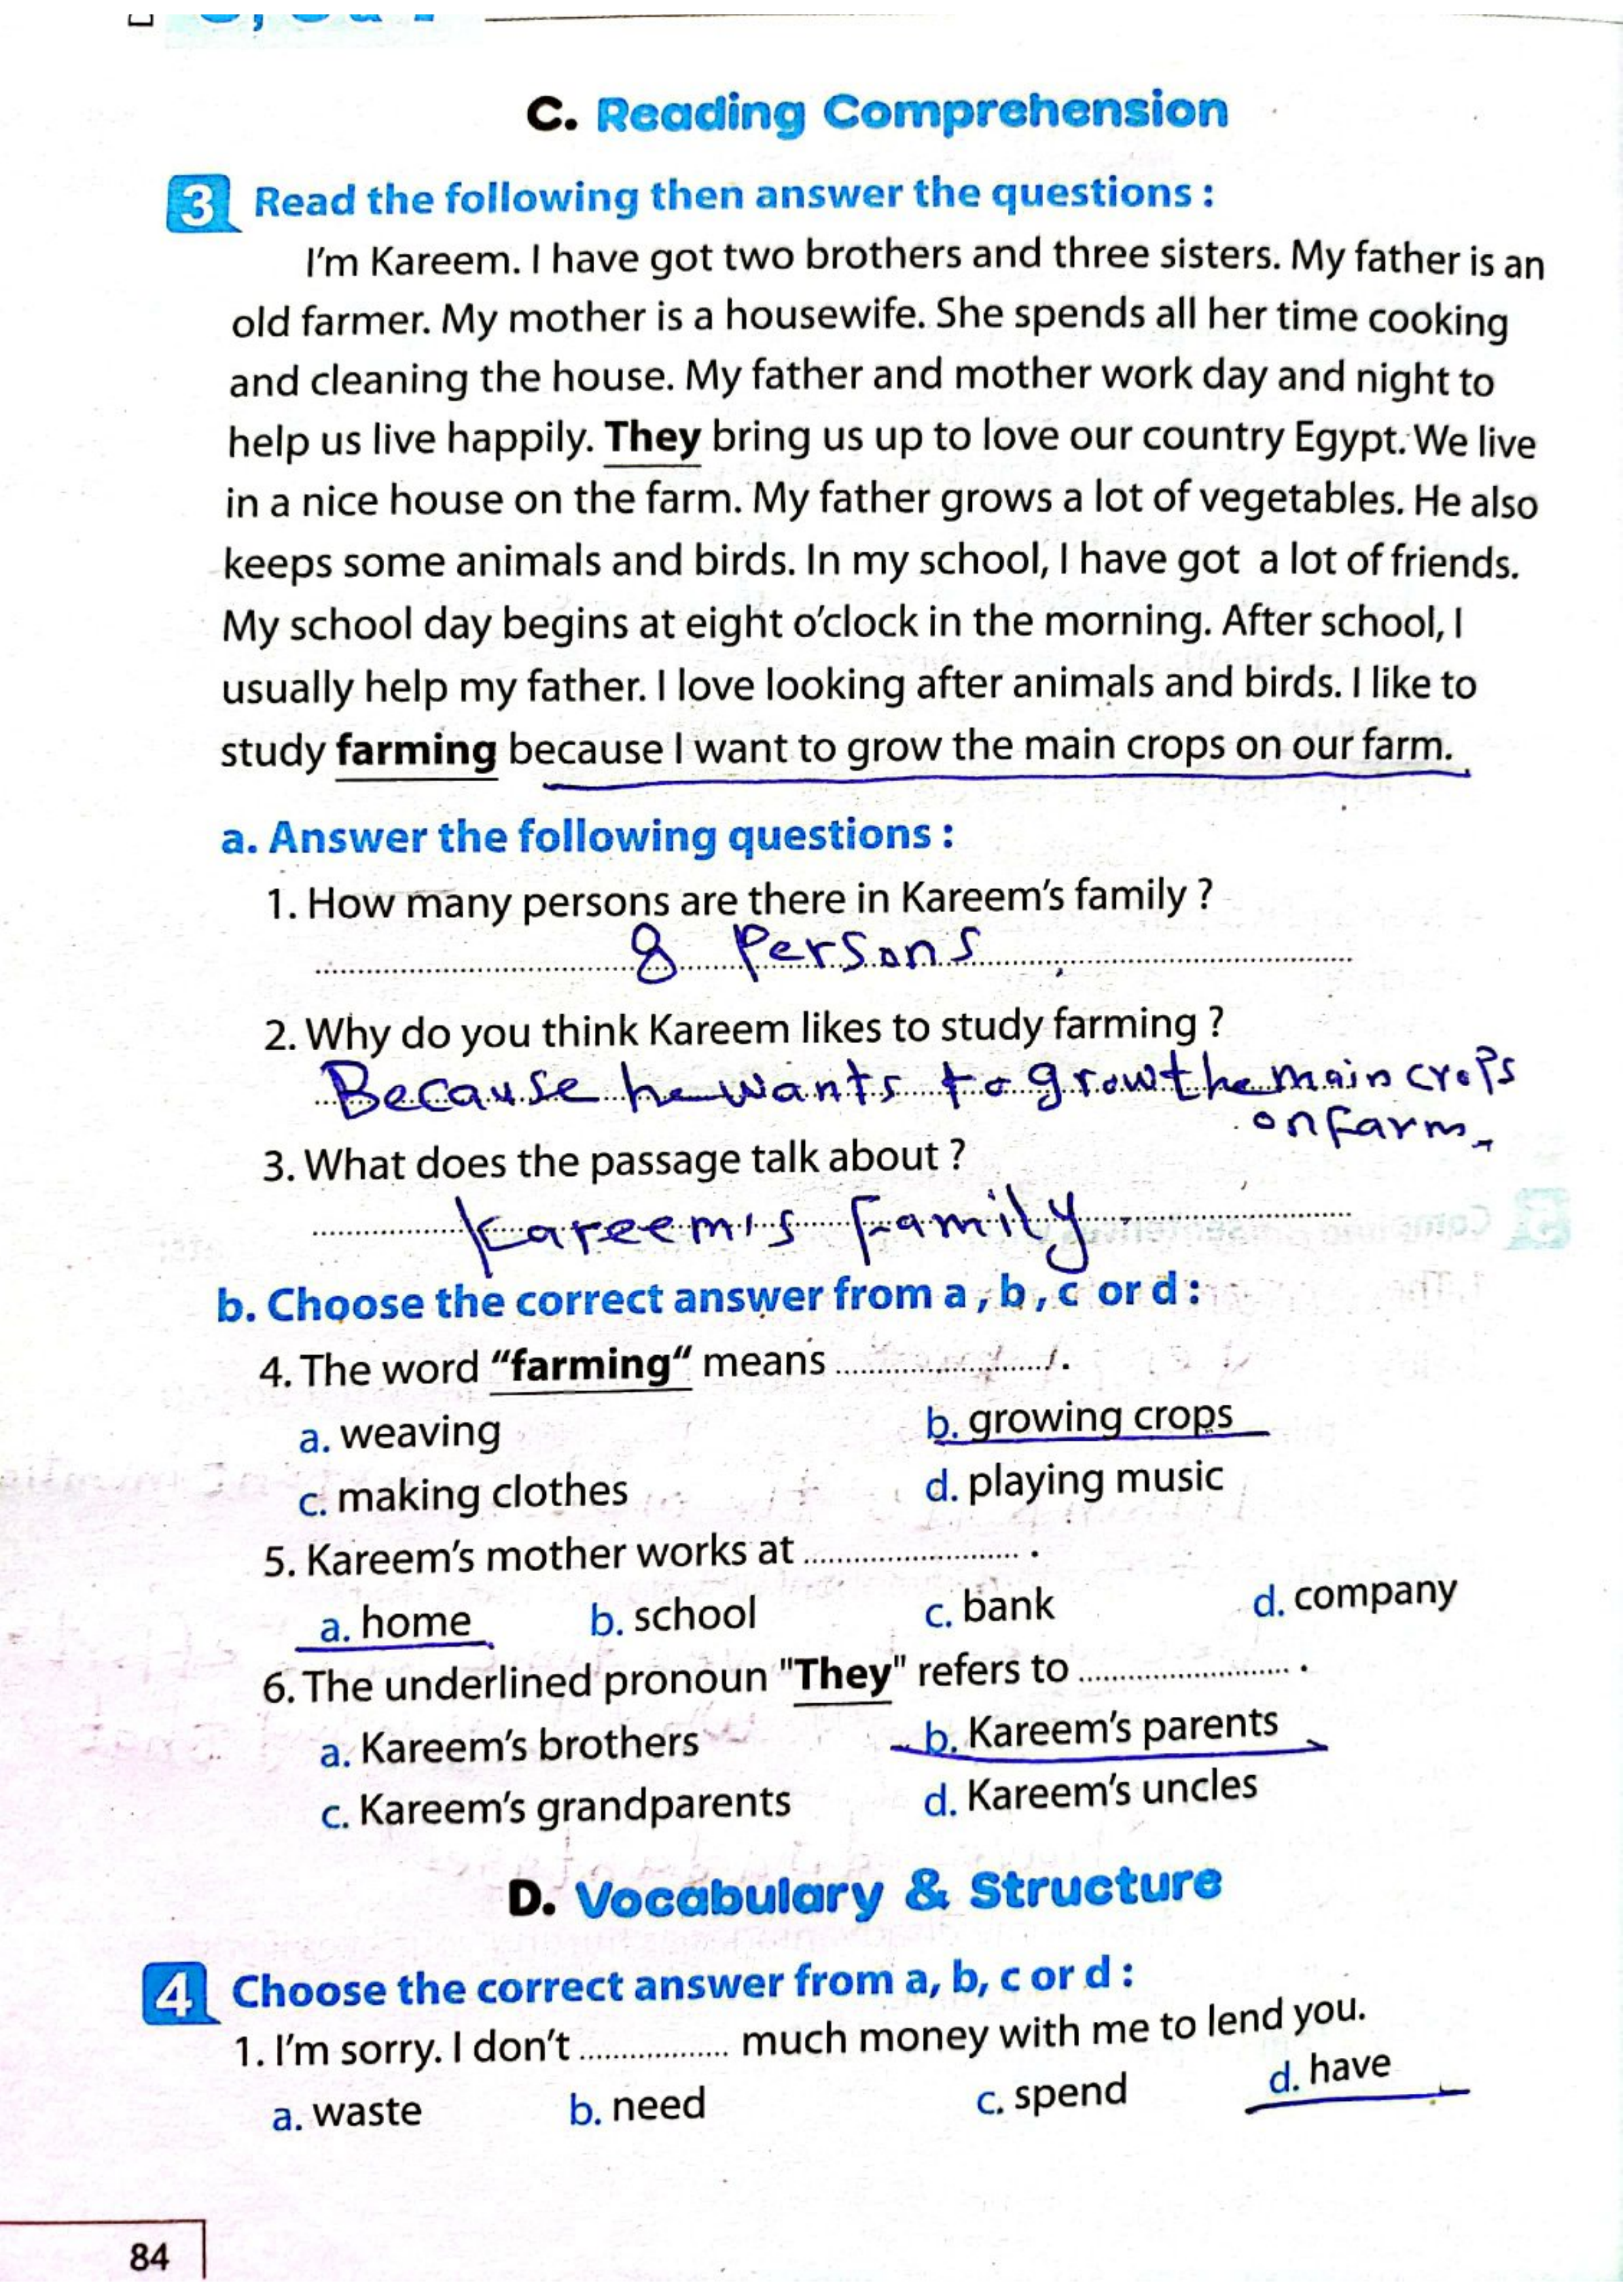 C. Reading Comprehension
3 Read the following then answer the questions :
I'm Kareem. I have got two brothers and three sisters. My father is an
old farmer. My mother is a housewife. She spends all her time cooking
and cleaning the house. My father and mother work day and night to
help us live happily. They bring us up to love our country Egypt. We live
in a nice house on the farm. My father grows a lot of vegetables. He also
keeps some animals and birds. In my school, I have got a lot of friends.
My school day begins at eight o'clock in the morning. After school, I
usually help my father. I love looking after animals and birds. I like to
study farming because I want to grow the main crops on our farm.
a. Answer the following questions :
1. How many persons are there in Kareem's family ?
8 Persons
2. Why do you think Kareem likes to study farming ?
Because he wants to grow the main crops
on farm.
3. What does the passage talk about ?
Kareem's family
b. Choose the correct answer from a , b , c or d :
4. The word "farming" means .................... .
a. weaving b. growing crops
c. making clothes d. playing music
5. Kareem's mother works at .................... .
a. home b. school c. bank d. company
6. The underlined pronoun "They" refers to .................... .
a. Kareem's brothers b. Kareem's parents
c. Kareem's grandparents d. Kareem's uncles
D. Vocabulary & Structure
4 Choose the correct answer from a, b, c or d :
1. I'm sorry. I don't .................. much money with me to lend you.
a. waste b. need c. spend d. have
84